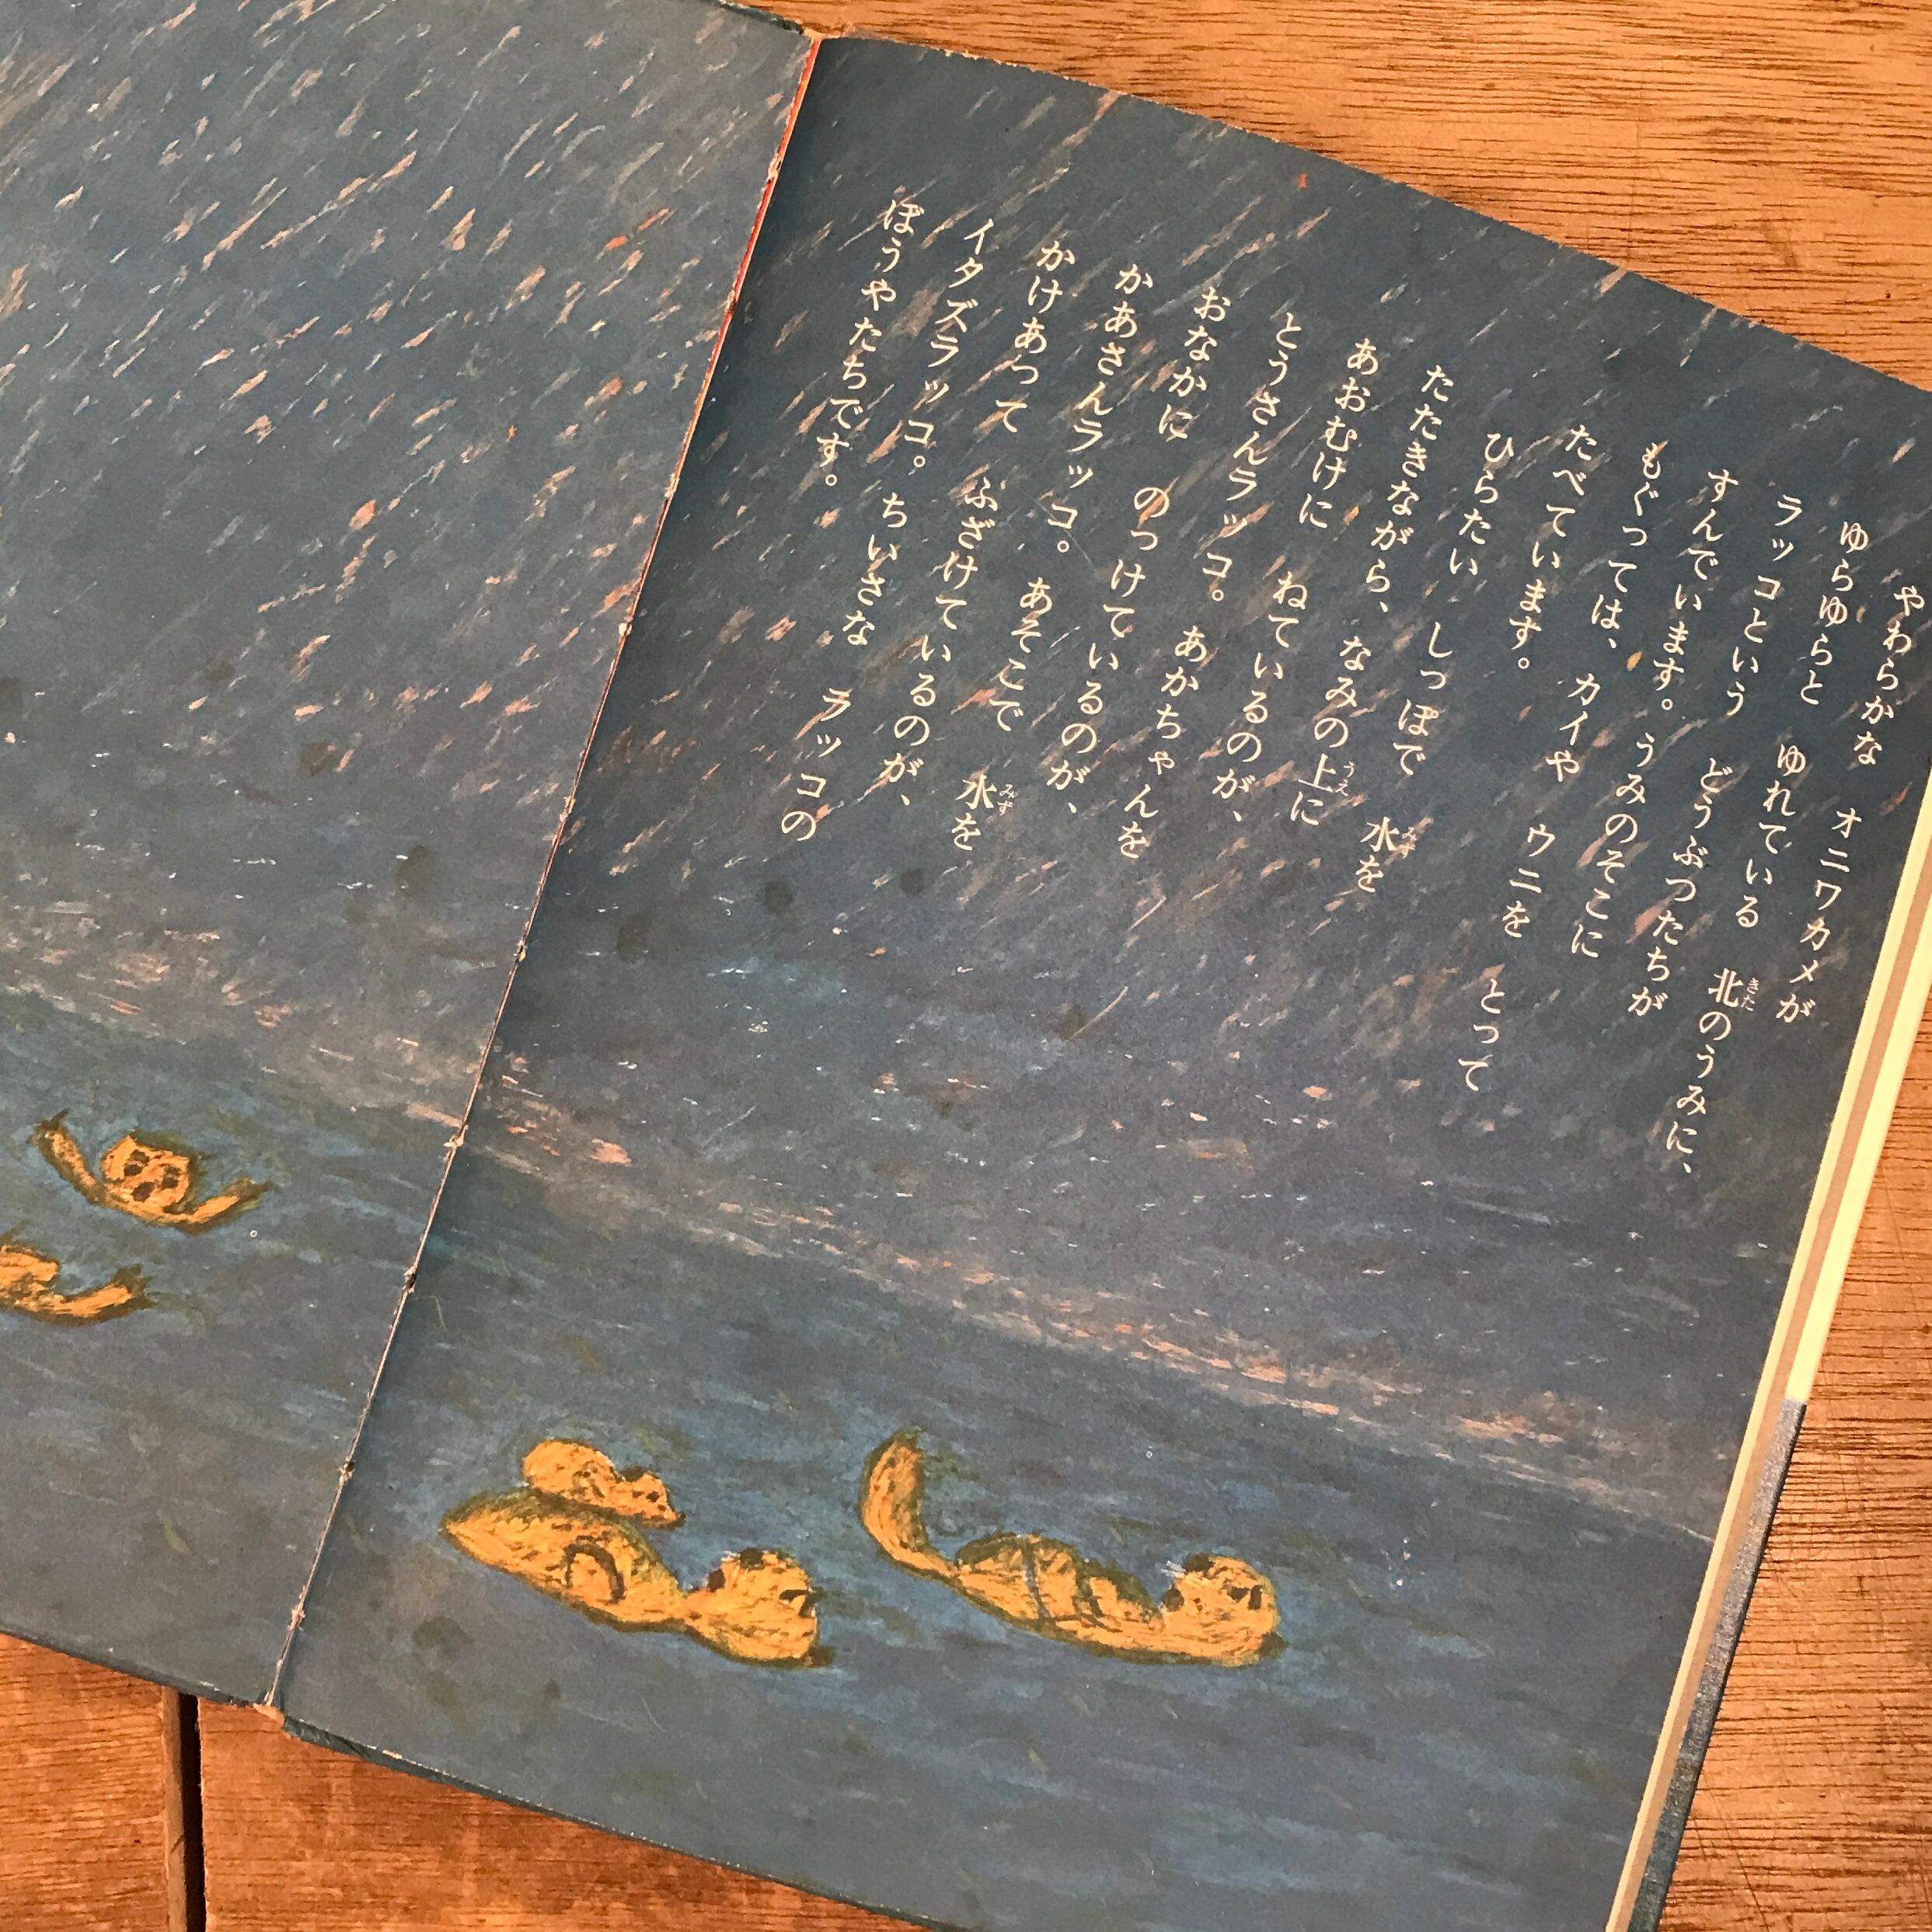 やわらかな　オニワカメが
ゆらゆらと　ゆれている　北のうみに、
ラッコという　どうぶつたちが
すんでいます。うみのそこに
もぐっては、カイや　ウニを　とって
たべています。
ひらたい　しっぽで　水を
たたきながら、なみの上に
あおむけに　ねているのが、
とうさんラッコ。あかちゃんを
おなかに　のっけているのが、
かあさんラッコ。あそこで　水を
かけあって　ふざけているのが、
イタズラッコ。ちいさな　ラッコの
ぼうやたちです。